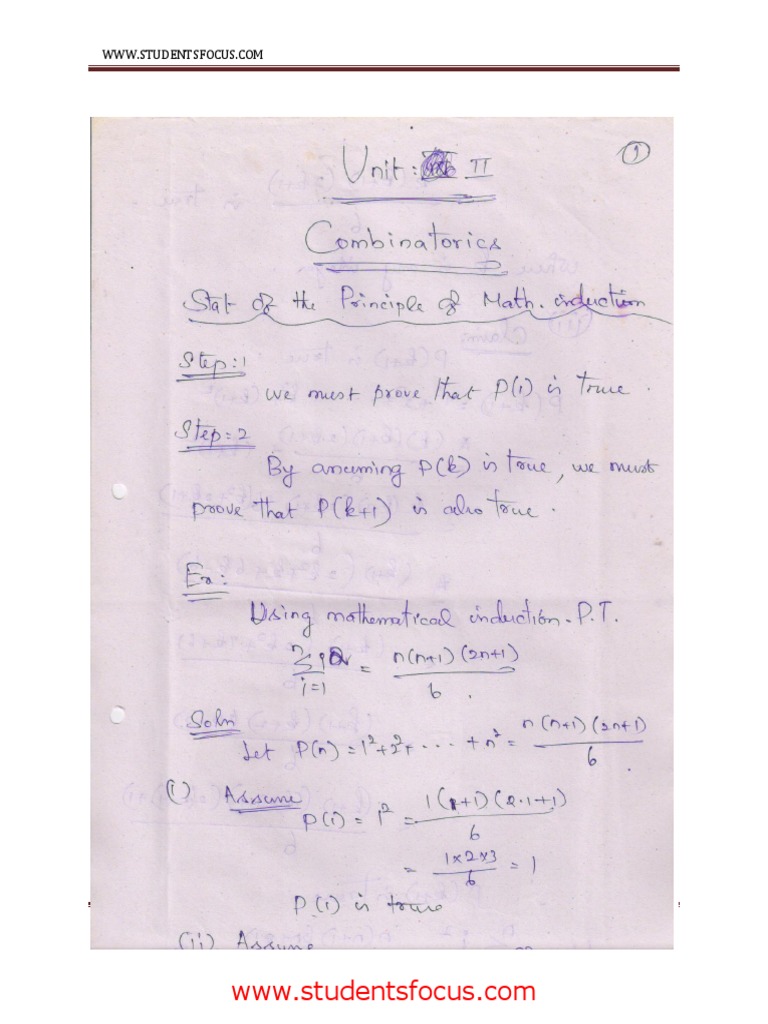 WWW.STUDENTSFOCUS.COM
1
Unit: II
Combinatorics
Stat of the Principle of Math. induction
Step:1
we must prove that P(1) is true.
Step:2
By assuming P(k) is true, we must
prove that P(k+1) is also true.
Ex:
Using mathematical induction. P.T.
n
∑ i² = n(n+1)(2n+1)
i=1 6.
Soln
Let P(n) = 1²+2²+ ..... + n² = n(n+1)(2n+1)
6.
(i) Assume
P(1) = 1² = 1(1+1)(2.1+1)
6
= 1x2x3 = 1
6
P(1) is true
(ii) Assume
www.studentsfocus.com